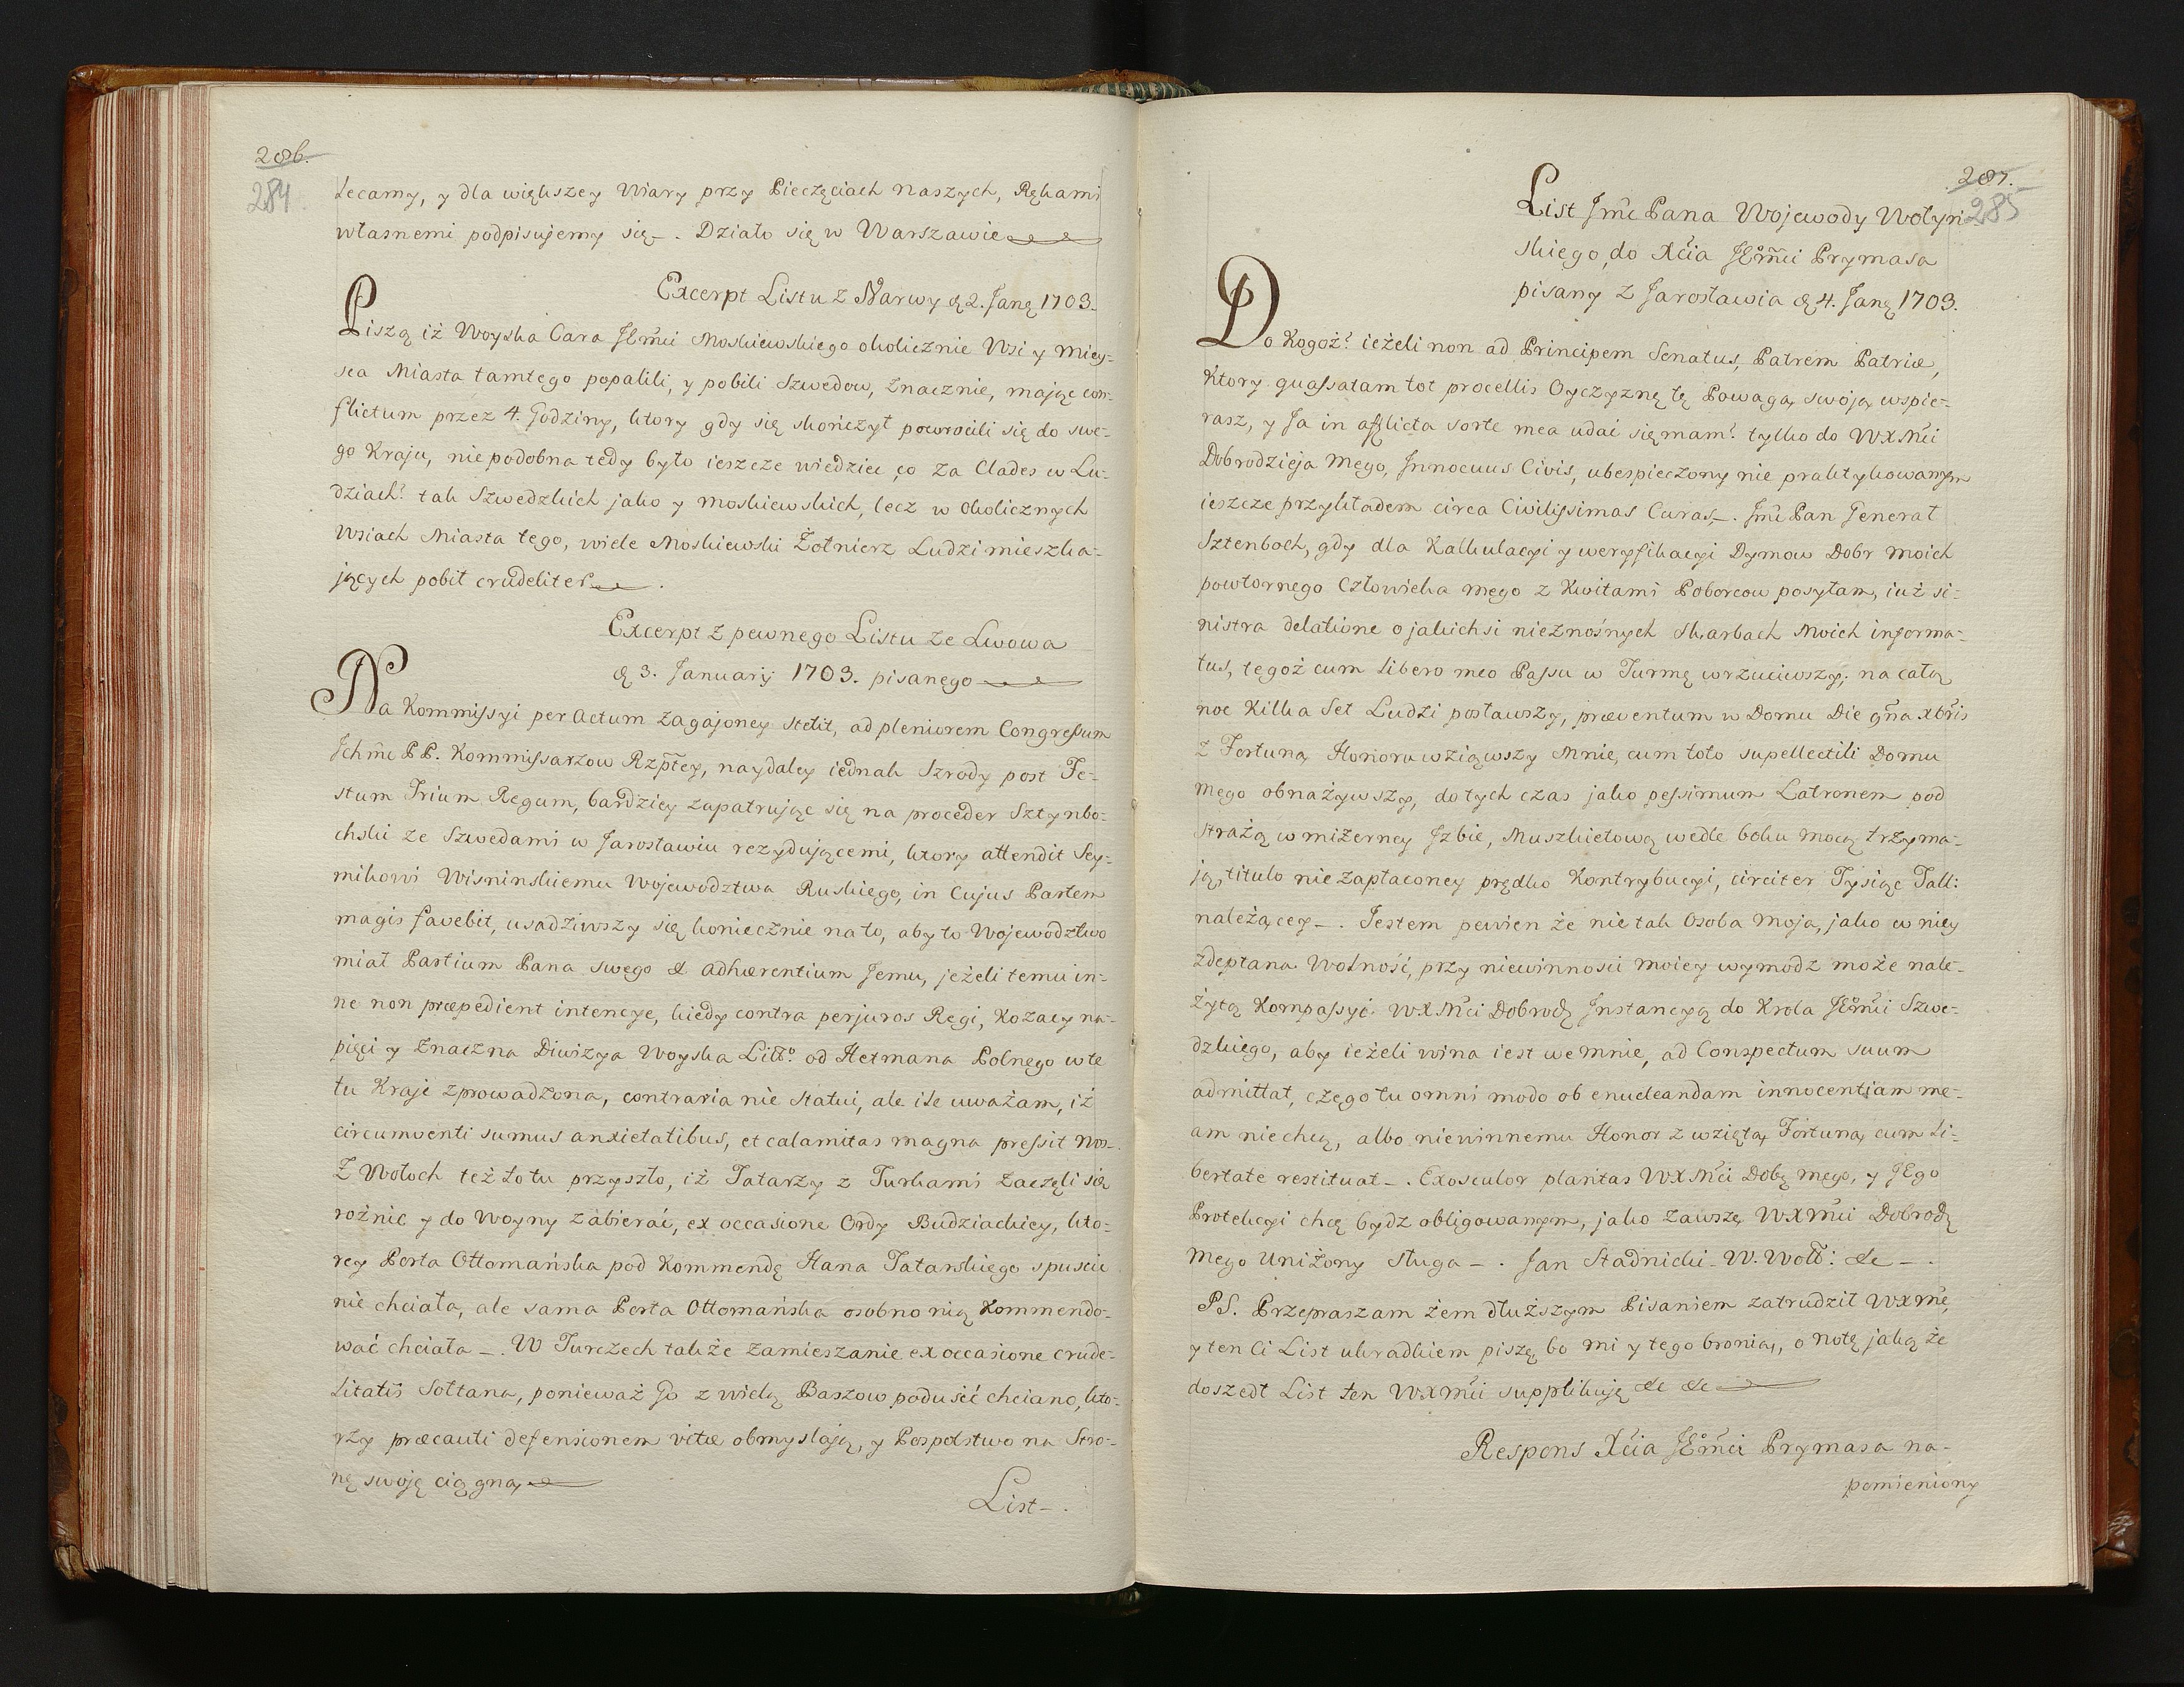 286.
284.
lecamy, y dla większey Wiary przy Pieczęciach naszych, Rękami
własnemi podpisujemy się_. Działo się w Warszawie
Excerpt Listu z Narwy d. 2. Janu. 1703.
Piszą iż Woyska Cara JEmći Moskiewskiego okolicznie Wsi y Miey-
sca Miasta tamtego popalili, y pobili Szwedow, znacznie, mając con-
flictum przez 4. Godziny, ktory gdy się skończył powrocili się do swe-
go Kraju, niepodobna tedy było ieszcze wiedziec co za Clades w Lu-
dziach? tak Szwedzkich jako y Moskiewskich, lecz w okolicznych
Wsiach Miasta tego, wiele Moskiewski Żołnierz Ludzi mieszka-
jących pobił crudeliter.
Excerpt z pewnego Listu ze Lwowa
d. 3. Januarij 1703. pisanego
Na Kommissyi per actum zagajoney stetit, ad pleniorem Congressum
Jchmć PP. Kommissarzow Rzptey, naydaley iednak Szrody post Fe-
stum Trium Regum, bardziey zapatrując się na proceder Sztynbo-
chski ze Szwedami w Jarosławiu rezydującemi, ktory attendit Sey-
mikowi Wisninskiemu Wojewodztwa Ruskiego, in Cujus Partem
magis favebit, usadziwszy się koniecznie na to, aby to Wojewodztwo
miał Partium Pana swego & adhærentium Jemu, jeżeli temu in-
ne non præpedient intencye, kiedy contra perjuros Regi, Kozacy na-
pięci y znaczna Diwizya Woyska Litto. od Hetmana Polnego w te
tu Kraje zprowadzona, contraria nie statui, ale ile uważam, iż
circumventi sumus anxietatibus, et calamitas magna pressit Nos-
Z Wołoch też to tu przyszło, iż Tatarzy z Turkami zaczęli się
rożnic y do Woyny zabierać, ex occasione Ordy Budziackiey, kto-
rey Porta Ottomańska pod Kommendę Hana Tatarskiego spuscic
nie chciała, ale sama Porta Ottomańska osobno nią Kommendo-
wać chciała_. W Turczech także zamieszanie ex occasione crude-
litatis Sołtana, ponieważ Go z wielą Baszow podusić chciano, kto-
rzy præcauti defensionem vitæ obmyslają, y Pospolstwo na Stro-
nę swoję ciągną
List_.
287.
285
List Jmć Pana Wojewody Wołyn-
skiego, do Xćia JEomći Prymasa
pisany z Jarosławia d. 4. Janu. 1703.
Do Kogoż? ieżeli non ad Principem Senatus, Patrem Patriæ,
Ktory quassatam tot procellis Oyczyznę tę Powagą swoją wspie-
rasz, y Ja in afflicta sorte mea udać się mam? tylko do WXMći
Dobrodzieja Mego, Innocuus Civis, ubespieczony nie praktykowanym
ieszcze przykładem circa Civilissimas Curas_. Jmć Pan Generał
Sztenboch, gdy dla Kalkulacyi y weryfikacyi Dymow Dobr moich
powtornego Człowieka mego z Kwitami Poborcow posyłam, iuż si-
nistra delatione o jakichsi nieznośnych Skarbach Moich informa-
tus, tegoż cum libero meo Passu w Turmę wrzuciwszy; na całą
noc Kilka Set Ludzi postawszy, præventum w Domu Die 9na Xbris
z Fortuną Honoru wziąwszy Mnie, cum toto supellectili Domu
mego obnażywszy, do tych czas jako pessimum Latronem pod
strażą w mizerney Izbie, Muszkietową wedle boku mocą trzyma-
ją, titulo niezapłaconey prędko Kontrybucyi, circiter Tysiąc Tall:
należącey_. Jestem pewien że nie tak Osoba Moja, jako w niey
zdeptana Wolność, przy niewinnosci moiey wymodz może nale-
żytą Kompassyi WXMći Dobrodz. Instancyą do Krola JEomći Szwe-
dzkiego, aby ieżeli wina iest we mnie, ad Conspectum suum
admittat, czego tu omni modo ob enucleandam innocentiam me-
am nie chcą, albo niewinnemu Honor z wziętą Fortuną cum Li-
bertate restituat_. Exosculor plantas WXMći Dobr. mego, y JEgo
Protekcyi chcę bydz obligowanym, jako zawsze WXMći Dobrodz.
Mego Uniżony Sługa_. Jan Stadnicki_ W. Woł: &c_.
PS. Przepraszam żem dłuższym Pisaniem zatrudził WXMć,
y ten Ci List ukradkiem piszę, bo mi y tego bronią, o notę jaką że
doszedł List ten WXMći supplikuję &c &c
Respons Xćia JEomći Prymasa na-
pomieniony